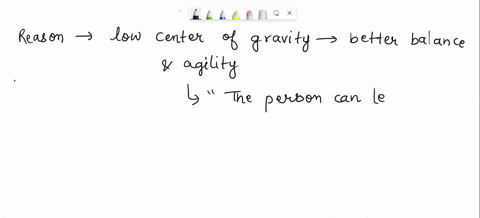 Reason → low center of gravity → better balance
& agility
↳ " The person can le